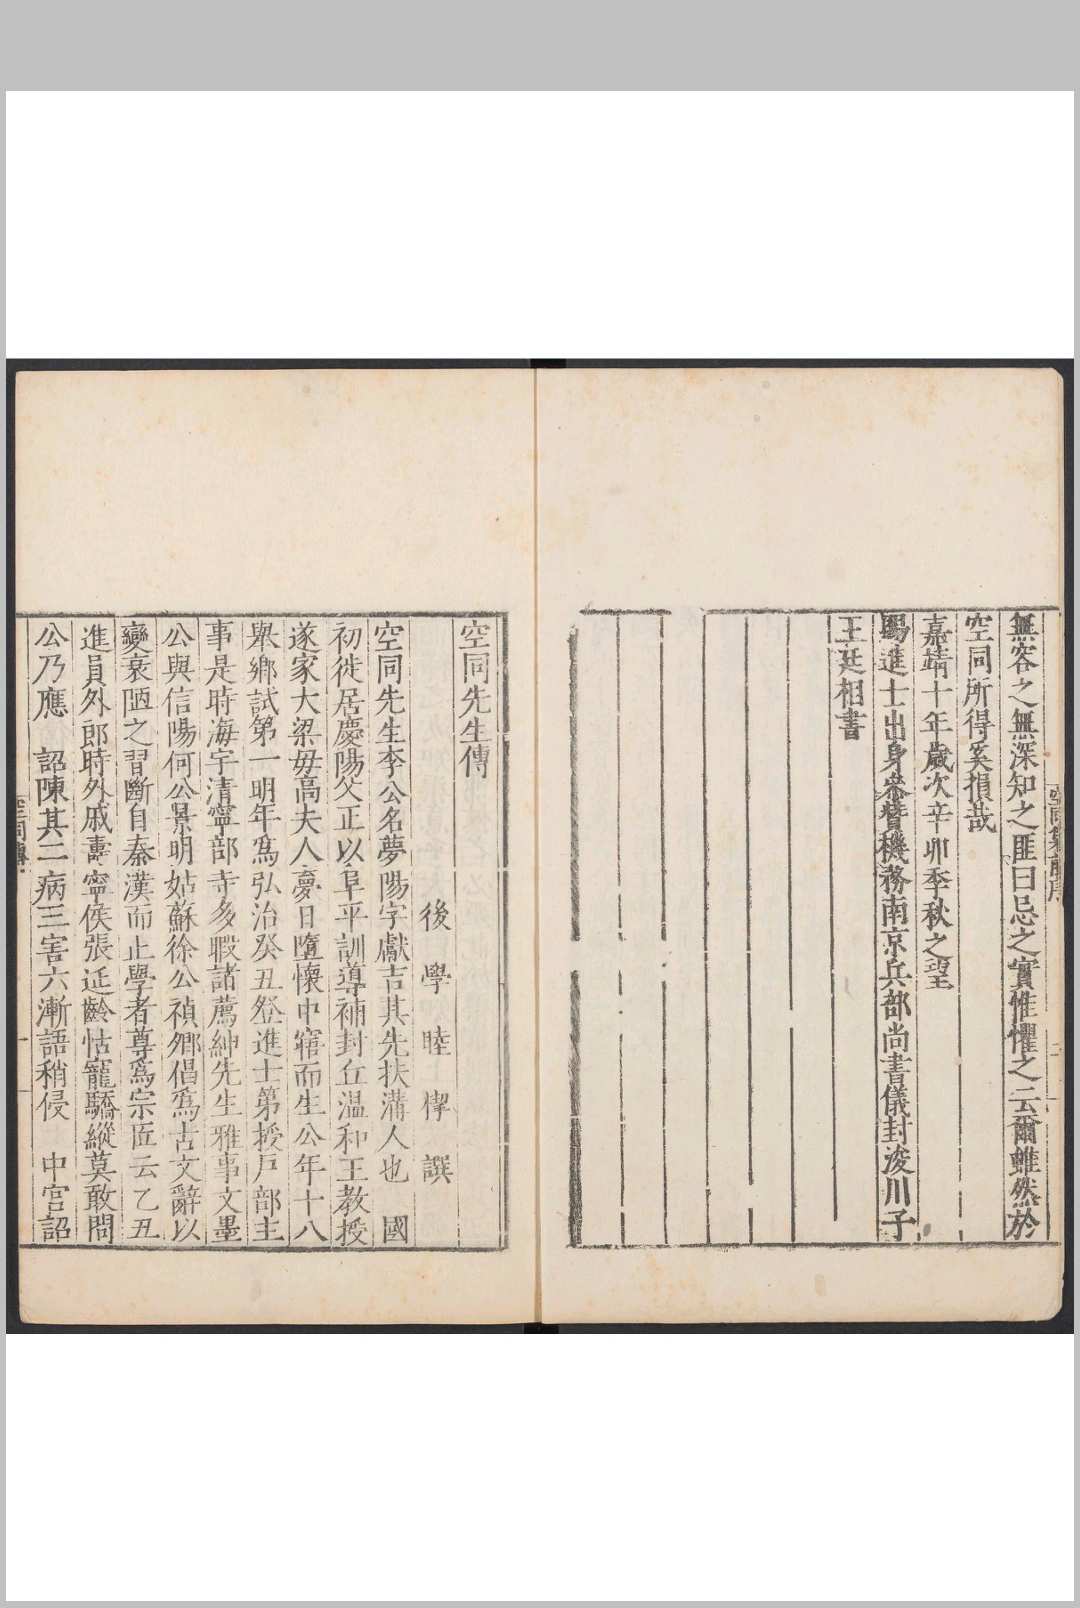 無容之無深知之匪曰忌之實惟懼之云爾雖然於
空同所得奚損哉
嘉靖十年歲次辛卯季秋之望
賜進士出身參贊機務南京兵部尚書儀封浚川子
王廷相書
空同先生傳
後學睦㮮撰
空同先生李公名夢陽字獻吉其先扶溝人也　國
初徙居慶陽父正以阜平訓導補封丘温和王教授
遂家大梁毋高夫人夢日墮懷中寤而生公年十八
舉鄉試第一明年爲弘治癸丑登進士第授戶部主
事是時海宇清寧部寺多暇諸薦紳先生雅事文墨
公與信陽何公景明姑蘇徐公禎卿倡爲古文辭以
變衰陋之習斷自秦漢而止學者尊爲宗匠云乙丑
進員外郎時外戚壽寧侯張延齡怙寵驕縱莫敢問
公乃應　詔陳其二病三害六漸語稍侵　中宮詔